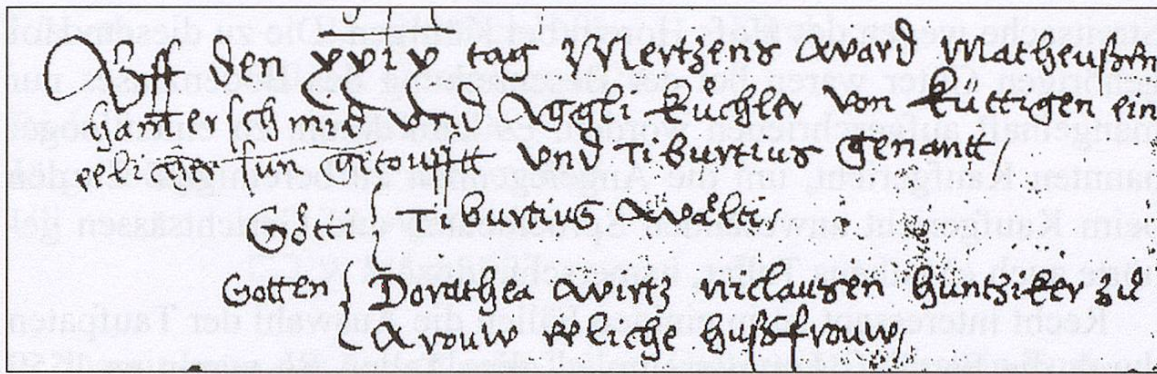 Uff den xxix tag Mertzens ward Matheußen
Hottersch med vnd Aggli Küchler von Küttigen ein
eelicher sun getoufft vnd Tiburtius genant
Götti Tiburtius Wälti
Gotten Dorathea Wirtz Niclausen Huntziker zu
Arouw eeliche hußfrouw